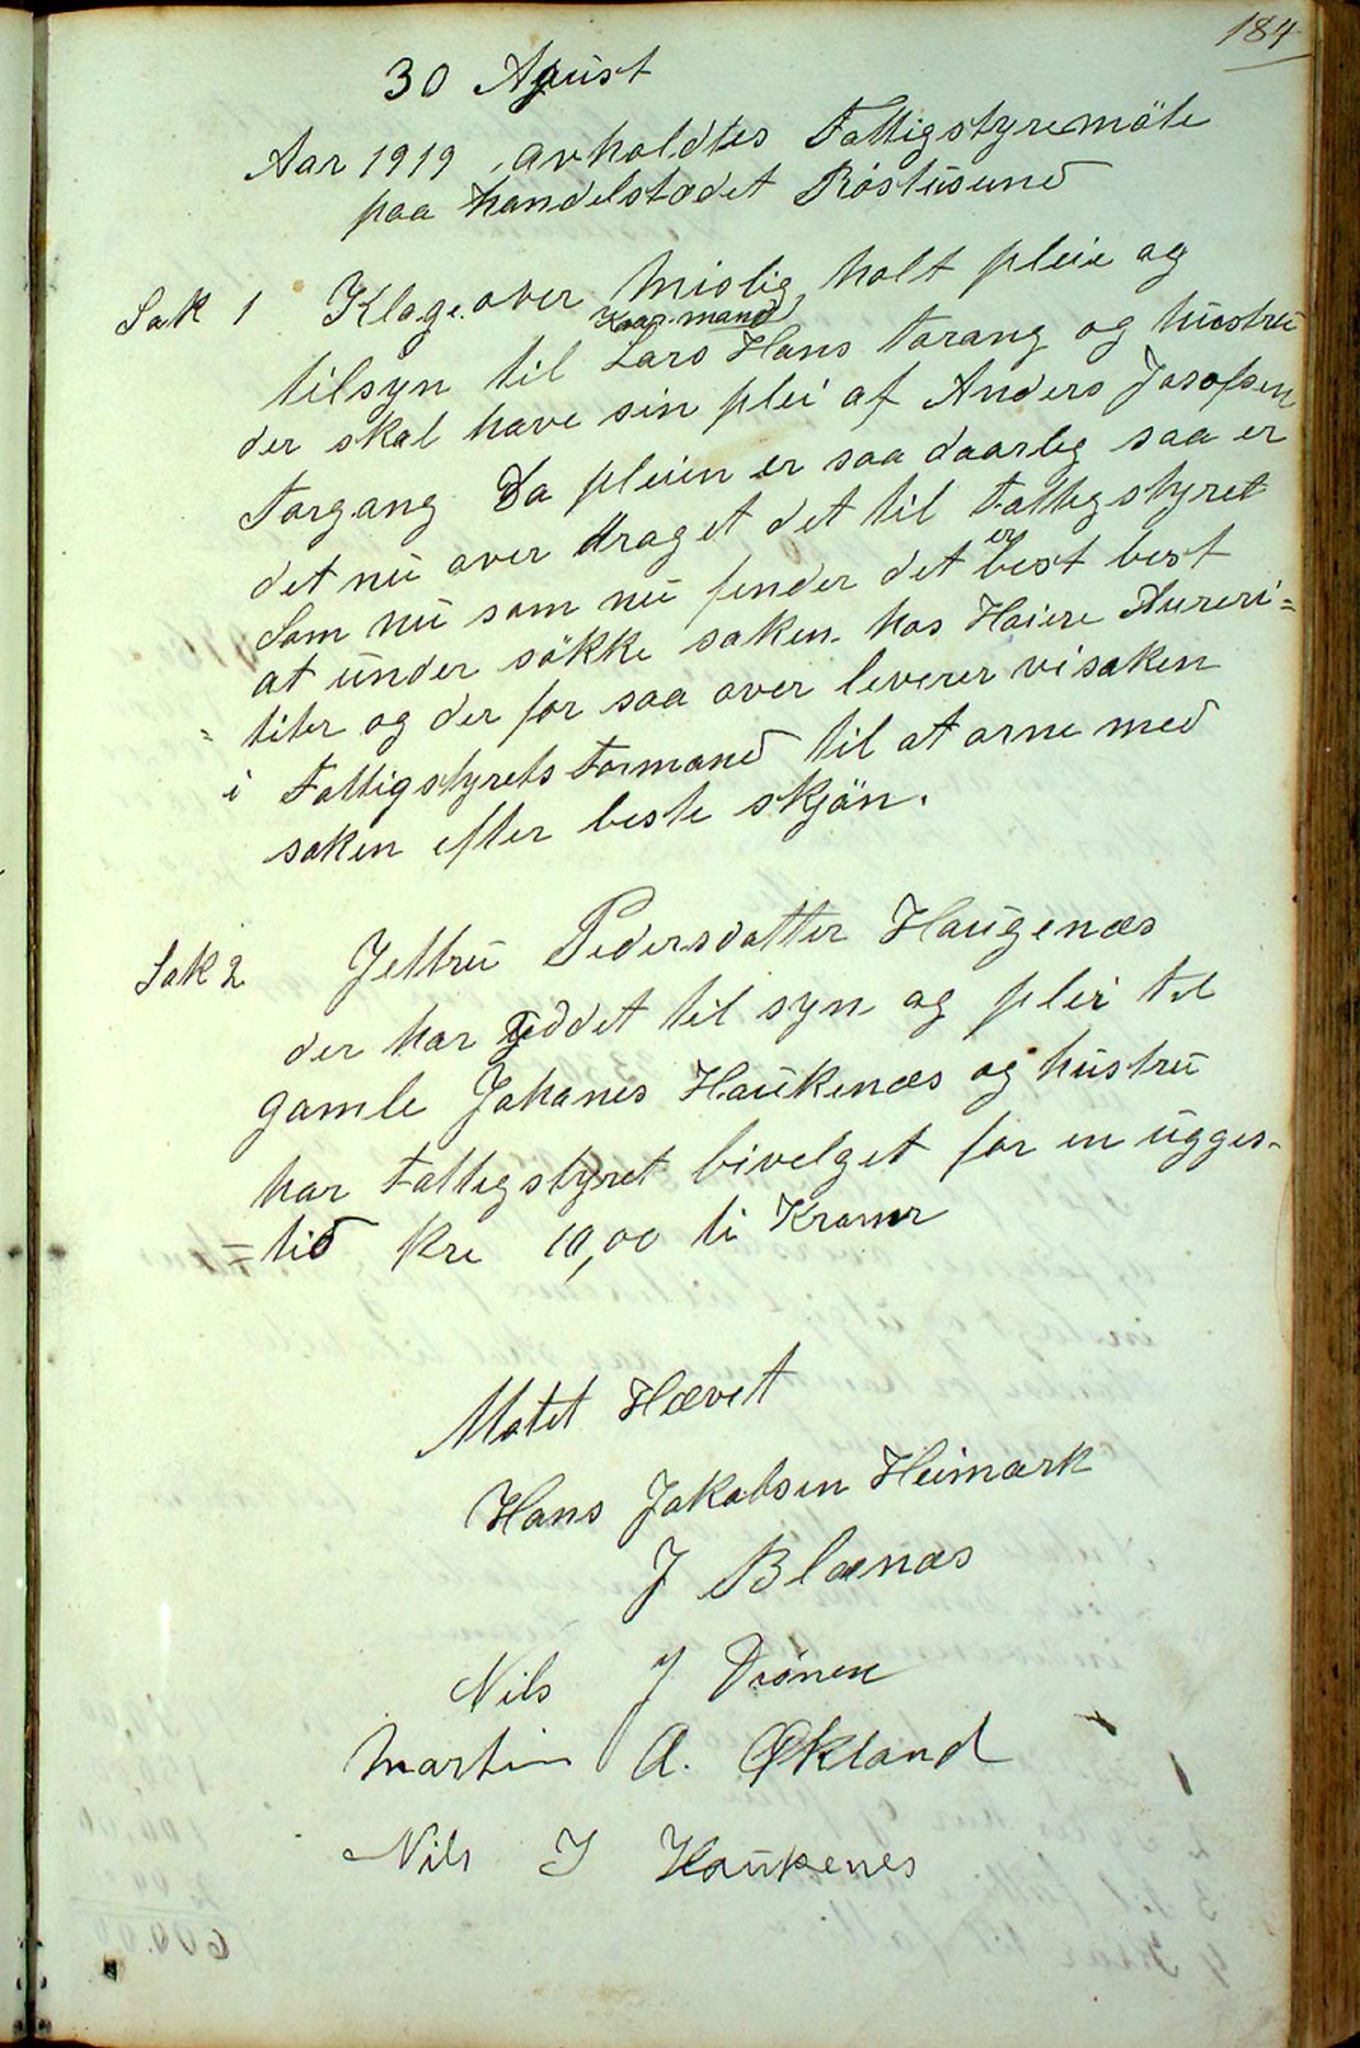 184
30 Agust
Aar 1919, avholdtes Fattigstyremöte
paa handelstædet Röstusund
Sak 1 Klage over Mislig holt pleie og
Kaar-mand
tilsyn til Lars Hans Tarang og hustru
der skal have sin plei af Anders Josefsen
Targang Da pleien er saa daarlig saa er
det nu over draget det til Fattigstyret
er
Som nu som nu finder det best best
at under sökke saken hos Høiere Autori=
= titer og der for saa over leverer vi saken
i Fattigstyrets Formand til at orne med
saken efter beste skjön.
Sak 2 Jeltru Pedersdatter Haugenæs
der har yddet til syn og plei til
gamle Johanes Haukenæs og hustru
har Fattigstyret bivelget for en ugges-
= tid Kre 10,00 ti Kroner
Motet Hævet
Hans Jakobsen Heimark
J Blænæs
Nils J Drönen
Martin A. Økland
Nils J Haukenes